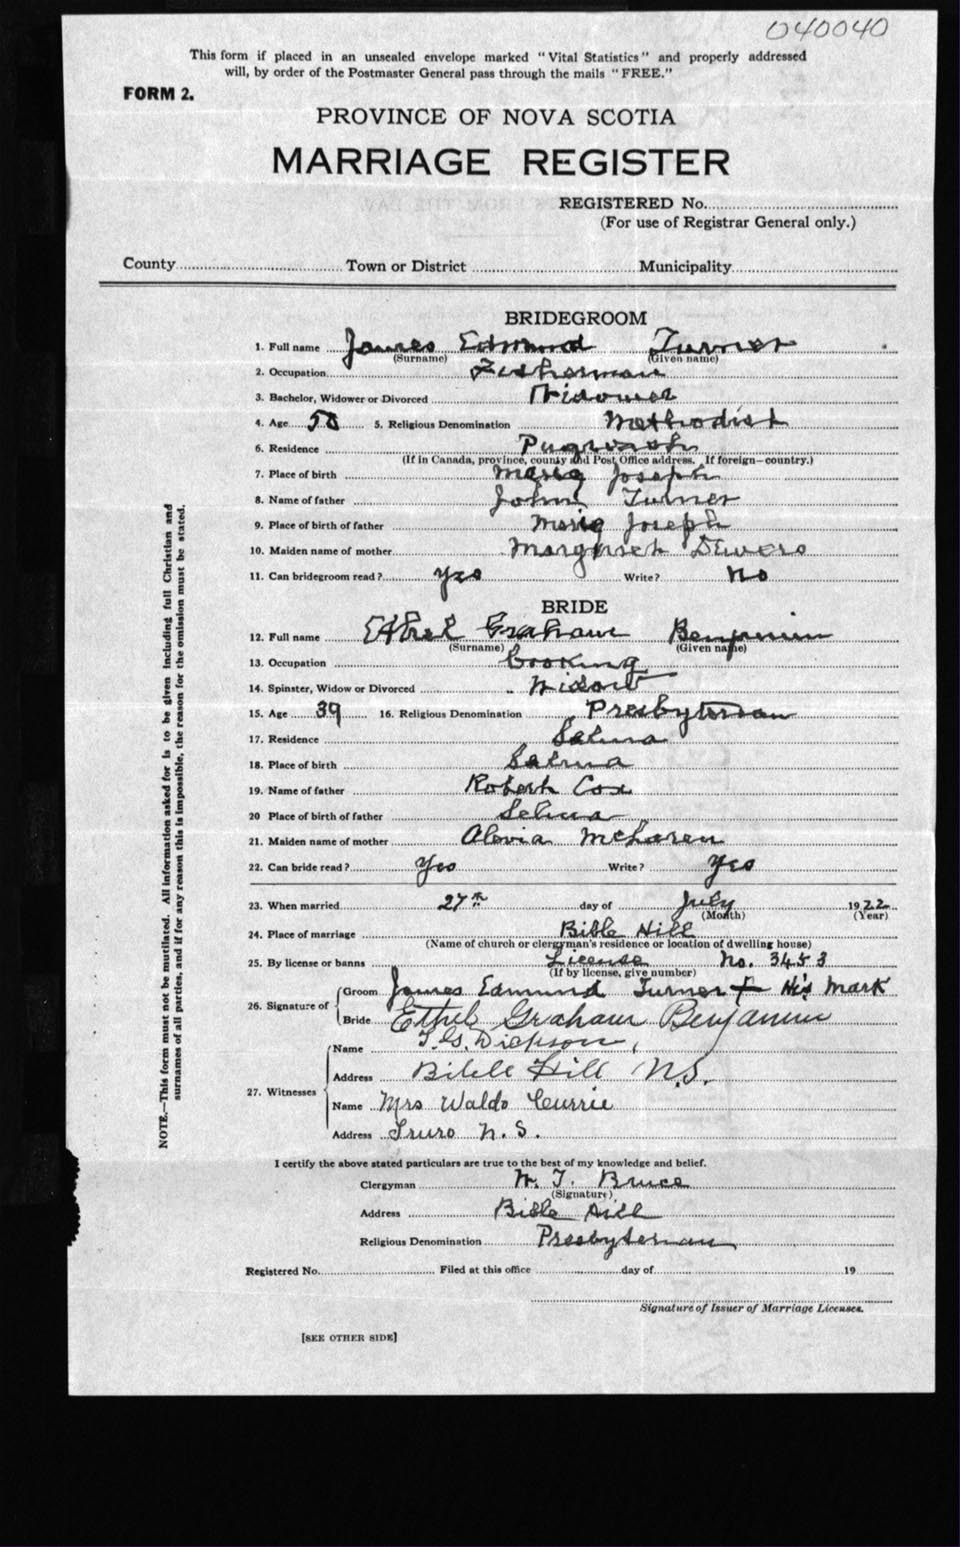 040040
This form if placed in an unsealed envelope marked "Vital Statistics" and properly addressed
will, by order of the Postmaster General pass through the mails "FREE."
FORM 2.
PROVINCE OF NOVA SCOTIA
MARRIAGE REGISTER
REGISTERED No.
(For use of Registrar General only.)
County Town or District Municipality
BRIDEGROOM
1. Full name James Edmund Turner
(Surname) (Given name)
2. Occupation Fisherman
3. Bachelor, Widower or Divorced Widower
4. Age 58 5. Religious Denomination Methodist
6. Residence Pugwash
(If in Canada, province, county and Post Office address. If foreign—country.)
7. Place of birth Marig Joseph
8. Name of father John Turner
9. Place of birth of father Marig Joseph
10. Maiden name of mother Margaret
11. Can bridegroom read? Yes Write? No
BRIDE
12. Full name Ethel Graham Benjamin
(Surname) (Given name)
13. Occupation Cooking
14. Spinster, Widow or Divorced Widow
15. Age 39 16. Religious Denomination Presbyterian
17. Residence Selma
18. Place of birth Selma
19. Name of father Robert Cox
20 Place of birth of father Selma
21. Maiden name of mother Alovia McLaren
22. Can bride read? Yes Write? Yes
23. When married 27th day of July 1922
(Month) (Year)
24. Place of marriage Bible Hill
(Name of church or clergyman's residence or location of dwelling house)
25. By license or banns License No. 3453
(If by license, give number)
26. Signature of Groom James Edmund Turner + His Mark
Bride Ethel Graham Benjamin
27. Witnesses Name T. G. Dickson,
Address Bible Hill N.S.
Name Mrs Waldo Currie
Address Truro N. S.
I certify the above stated particulars are true to the best of my knowledge and belief.
Clergyman W. T. Bruce
(Signature)
Address Bible Hill
Religious Denomination Presbyterian
Registered No. Filed at this office day of 19
Signature of Issuer of Marriage Licenses.
[SEE OTHER SIDE]
NOTE.—This form must not be mutilated. All information asked for is to be given including full Christian and
surnames of all parties, and if for any reason this is impossible, the reason for the omission must be stated.